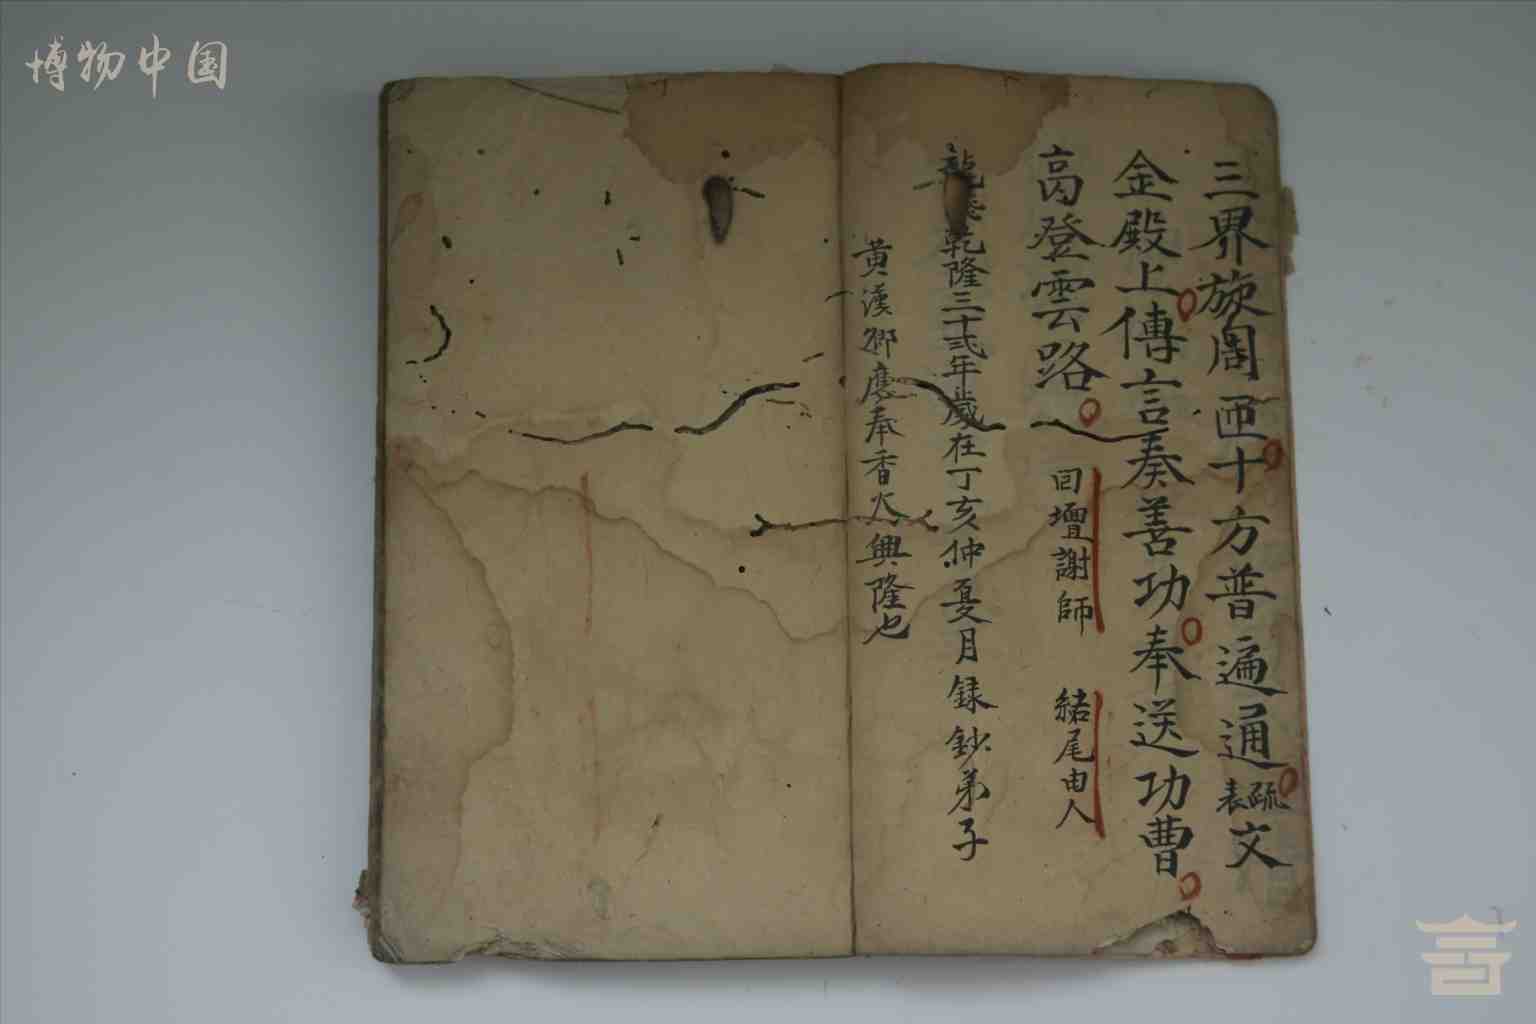 博物中国
三界旋周匝十方普遍通疏表文
金殿上傳言奏善功奉送功曹
高登雲路
回壇謝師 緒尾由人
龍乾隆三十弍年歲在丁亥仲夏月録鈔弟子
黄漢郷應奉香火興隆也